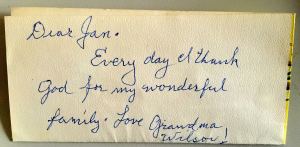 Dear Jan.
Every day I thank
God for my wonderful
family. Love Grandma
Wilson!